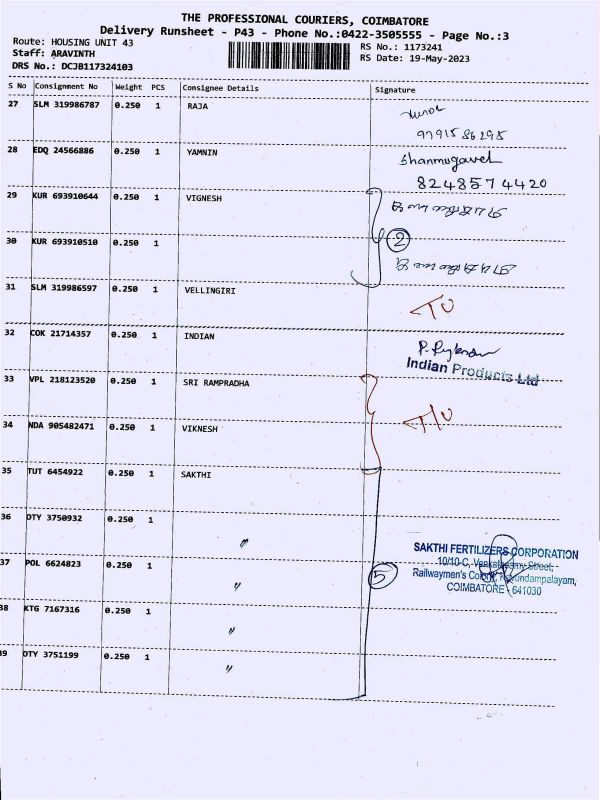 THE PROFESSIONAL COURIERS, COIMBATORE
Delivery Runsheet - P43 - Phone No.:0422-3505555 - Page No.:3
Route: HOUSING UNIT 43
Staff: ARAVINTH
DRS No.: DCJB117324103
RS No.: 1173241
RS Date: 19-May-2023
S No Consignment No Weight PCS Consignee Details Signature
27 SLM 319986787 0.250 1 RAJA
9791586295
28 EDQ 24566886 0.250 1 YAMNIN Shanmugavel
8248574420
29 KUR 693910644 0.250 1 VIGNESH
2
30 KUR 693910510 0.250 1
31 SLM 319986597 0.250 1 VELLINGIRI
32 COK 21714357 0.250 1 INDIAN
Indian Products Ltd
33 VPL 218123520 0.250 1 SRI RAMPRADHA
34 NDA 905482471 0.250 1 VIKNESH
35 TUT 6454922 0.250 1 SAKTHI
36 DTY 3750932 0.250 1 "
37 POL 6624823 0.250 1 "
5
SAKTHI FERTILIZERS CORPORATION
10/10-C, Street,
Railwaymen's
COIMBATORE - 641030
38 KTG 7167316 0.250 1 "
39 DTY 3751199 0.250 1 "